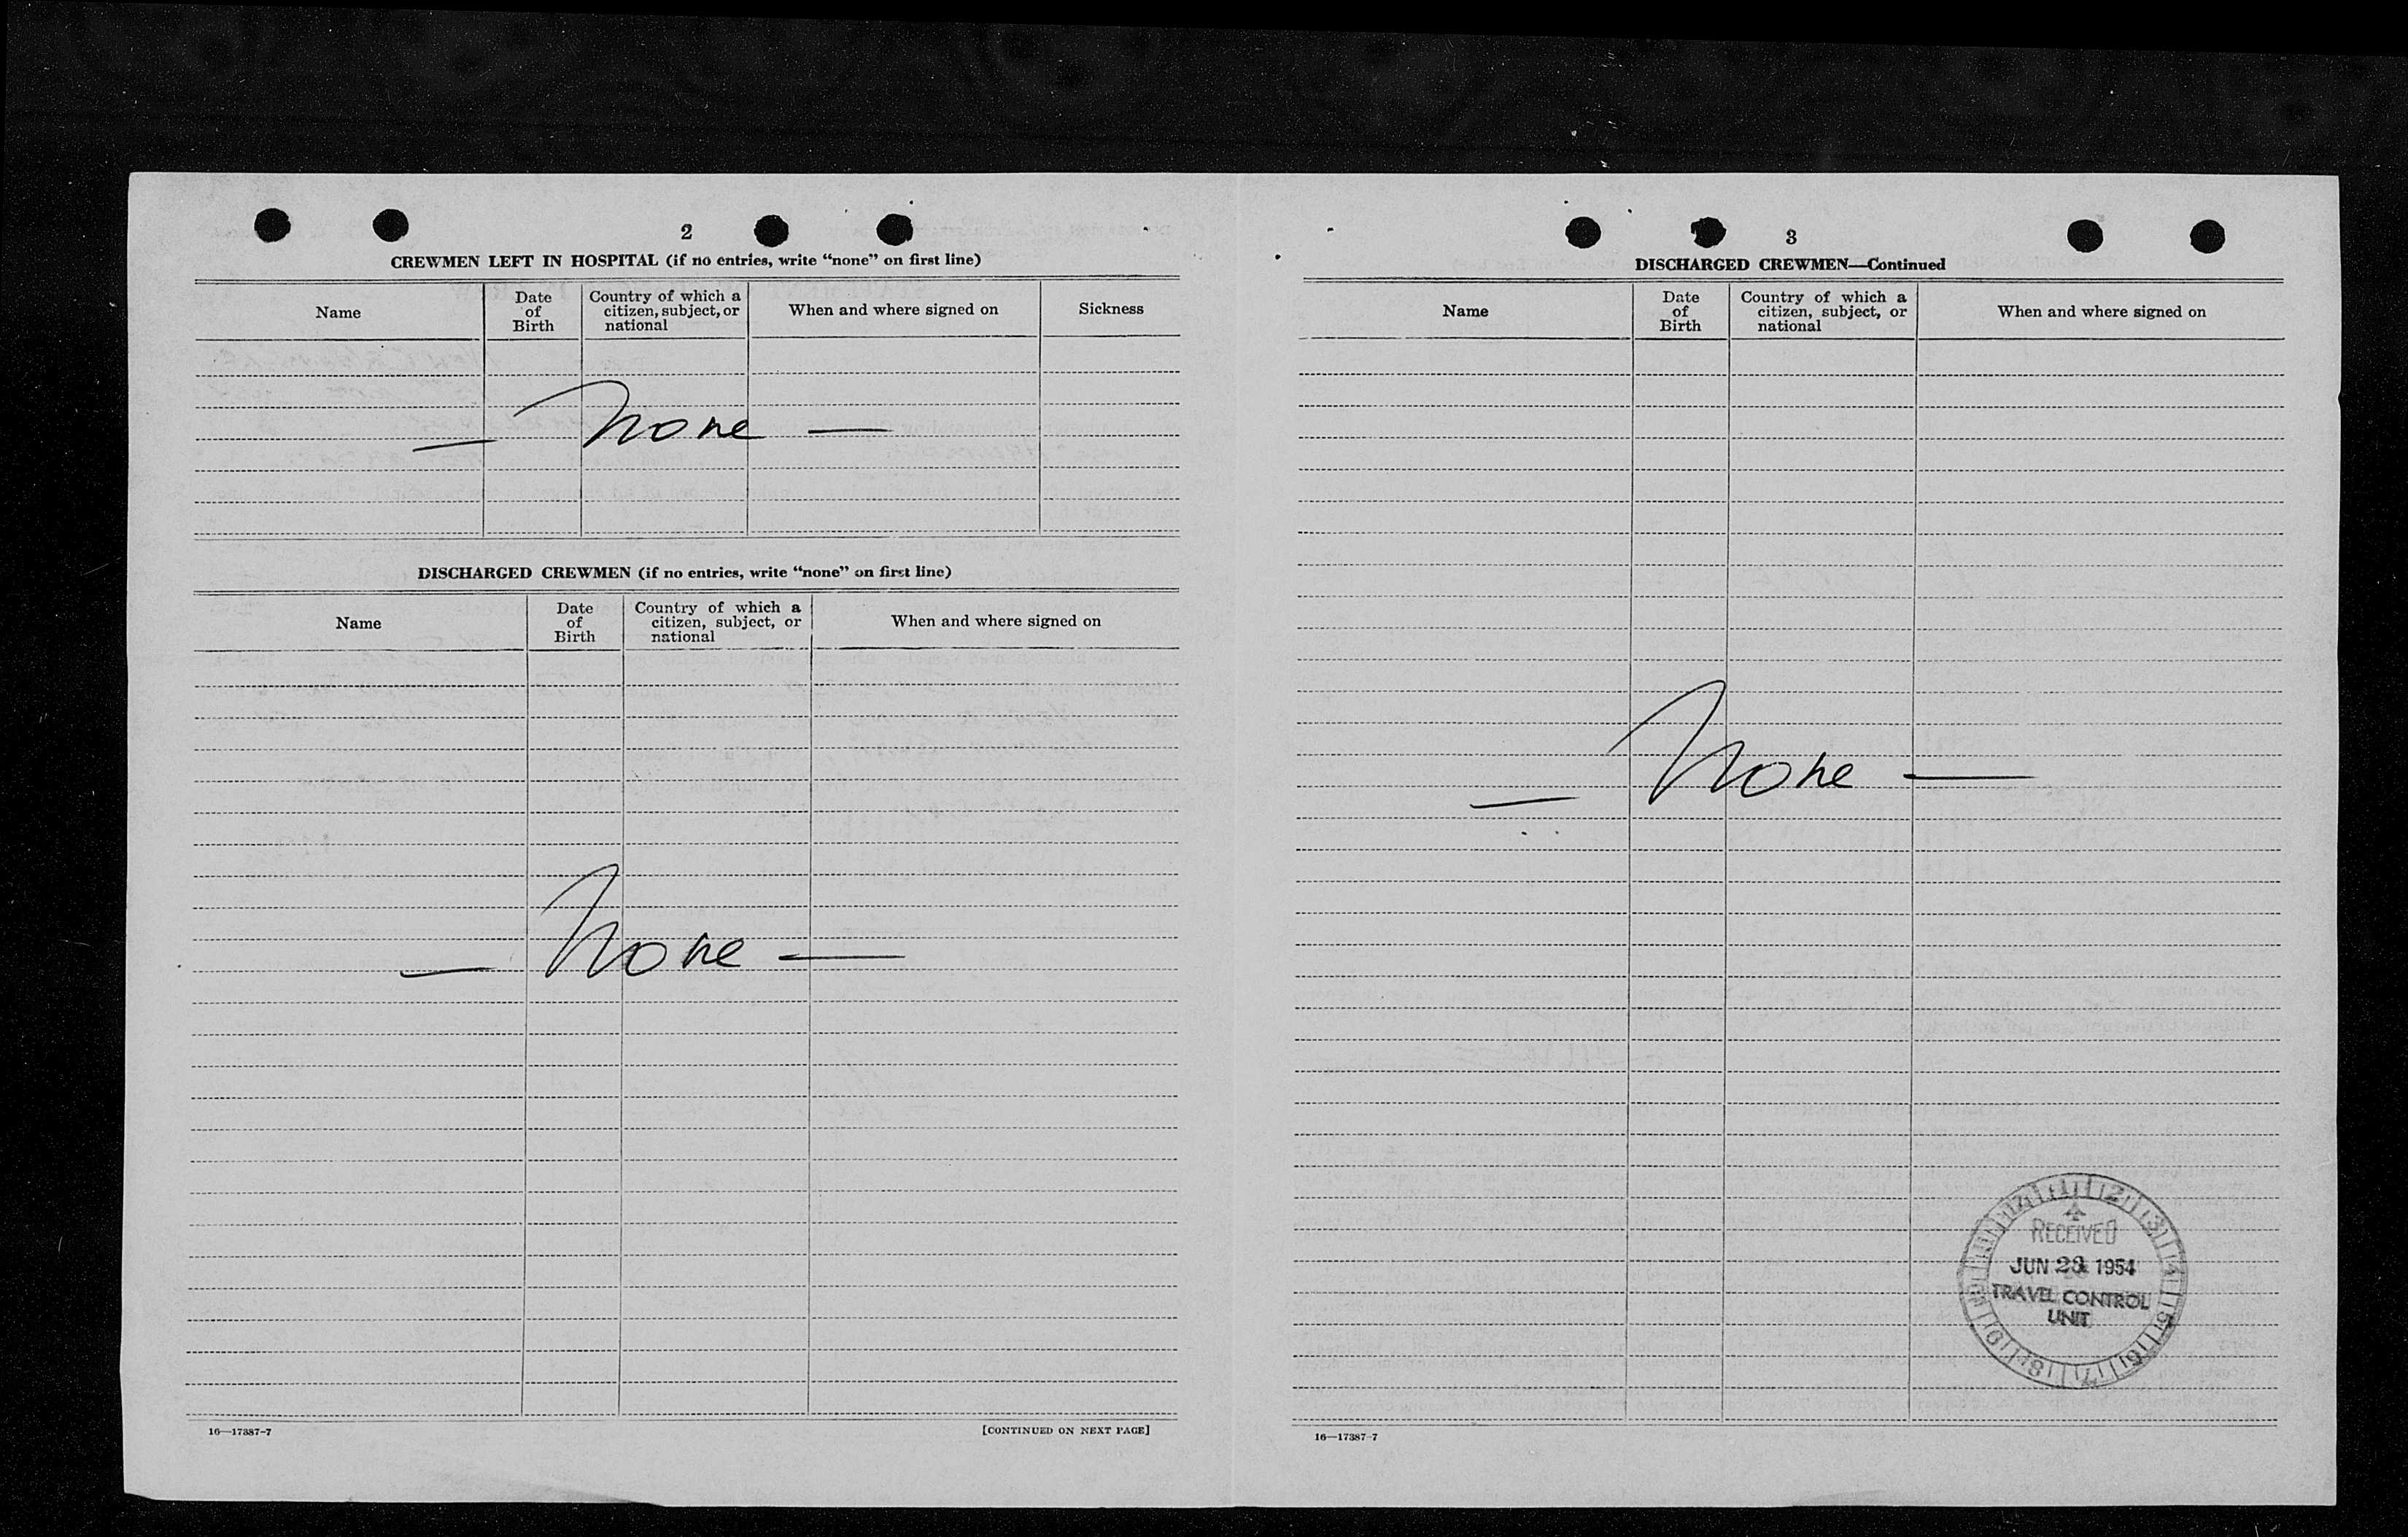 2
CREWMEN LEFT IN HOSPITAL (if no entries, write “none” on first line)
Name
Date of Birth
Country of which a citizen, subject, or national
When and where signed on
Sickness
— None —
DISCHARGED CREWMEN (if no entries, write “none” on first line)
Name
Date of Birth
Country of which a citizen, subject, or national
When and where signed on
— None —
16—17387-7
[CONTINUED ON NEXT PAGE]
3
DISCHARGED CREWMEN—Continued
Name
Date of Birth
Country of which a citizen, subject, or national
When and where signed on
— None —
RECEIVED
JUN 1954
TRAVEL CONTROL
UNIT
16—17387-7